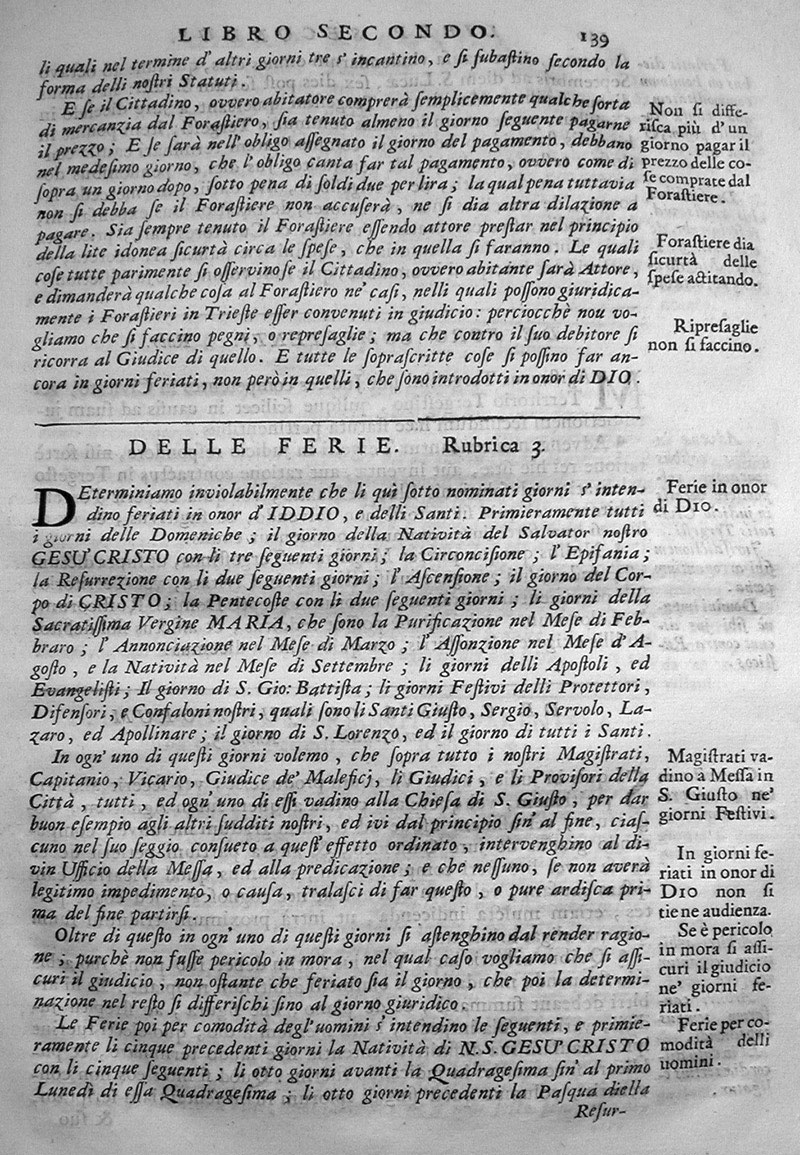 LIBRO SECONDO.
139
li quali nel termine d' altri giorni tre s' incantino, e ſi ſubaſtino ſecondo la
forma delli noſtri Statuti.
E ſe il Cittadino, ovvero abitatore comprerà ſemplicemente qualche ſorta
di mercanzia dal Foraſtiero, ſia tenuto almeno il giorno ſeguente pagarne
il prezzo; E ſe ſarà nell' obligo aſſegnato il giorno del pagamento, debbano
nel medeſimo giorno, che l' obligo canta far tal pagamento, ovvero come di
ſopra un giorno dopo, ſotto pena di ſoldi due per lira; la qual pena tuttavia
non ſi debba ſe il Foraſtiere non accuſerà, ne ſi dia altra dilazione a
pagare. Sia ſempre tenuto il Foraſtiere eſſendo attore preſtar nel principio
della lite idonea ſicurtà circa le ſpeſe, che in quella ſi faranno. Le quali
coſe tutte parimente ſi oſſervino ſe il Cittadino, ovvero abitante ſarà Attore,
e dimanderà qualche coſa al Foraſtiero ne' caſi, nelli quali poſſono giuridica-
mente i Foraſtieri in Trieſte eſſer convenuti in giudicio: perciocchè nou vo-
gliamo che ſi faccino pegni, o repreſaglie; ma che contro il ſuo debitore ſi
ricorra al Giudice di quello. E tutte le ſopraſcritte coſe ſi poſſino far an-
cora in giorni feriati, non però in quelli, che ſono introdotti in onor di DIO.
Non ſi diffe-
riſca più d' un
giorno pagar il
prezzo delle co-
ſe comprate dal
Foraſtiere.
Foraſtiere dia
ſicurtà delle
ſpeſe actitando.
Ripreſaglie
non ſi faccino.
DELLE FERIE. Rubrica 3.
DEterminiamo inviolabilmente che li quì ſotto nominati giorni s' inten-
dino feriati in onor d' IDDIO, e delli Santi. Primieramente tutti
i giorni delle Domeniche; il giorno della Natività del Salvator noſtro
GESU' CRISTO con li tre ſeguenti giorni; la Circonciſione; l' Epifania;
la Reſurrezione con li due ſeguenti giorni; l' Aſcenſione; il giorno del Cor-
po di CRISTO; la Pentecoſte con li due ſeguenti giorni; li giorni della
Sacratiſſima Vergine MARIA, che ſono la Purificazione nel Meſe di Feb-
braro; l' Annonciazione nel Meſe di Marzo; l' Aſſonzione nel Meſe d' A-
goſto, e la Natività nel Meſe di Settembre; li giorni delli Apoſtoli, ed
Evangeliſti; Il giorno di S. Gio: Battiſta; li giorni Feſtivi delli Protettori,
Difenſori, e Confaloni noſtri, quali ſono li Santi Giuſto, Sergio, Servolo, La-
zaro, ed Apollinare; il giorno di S. Lorenzo, ed il giorno di tutti i Santi.
In ogn' uno di queſti giorni volemo, che ſopra tutto i noſtri Magiſtrati,
Capitanio, Vicario, Giudice de' Malefici, li Giudici, e li Proviſori della
Città, tutti, ed ogn' uno di eſſi vadino alla Chieſa di S. Giuſto, per dar
buon eſempio agli altri ſudditi noſtri, ed ivi dal principio ſin' al fine, ciaſ-
cuno nel ſuo ſeggio conſueto a queſt' effetto ordinato, intervenghino al di-
vin Ufficio della Meſſa, ed alla predicazione; e che neſſuno, ſe non averà
legitimo impedimento, o cauſa, tralaſci di far queſto, o pure ardiſca pri-
ma del fine partirſi.
Oltre di queſto in ogn' uno di queſti giorni ſi aſtenghino dal render ragio-
ne; purchè non fuſſe pericolo in mora, nel qual caſo vogliamo che ſi aſſi-
curi il giudicio, non oſtante che feriato ſia il giorno, che poi la determi-
nazione nel reſto ſi differiſchi ſino al giorno giuridico.
Le Ferie poi per comodità degl' uomini s' intendino le ſeguenti, e primie-
ramente li cinque precedenti giorni la Natività di N. S. GESU' CRISTO
con li cinque ſeguenti; li otto giorni avanti la Quadrageſima ſin' al primo
Lunedì di eſſa Quadrageſima; li otto giorni precedenti la Paſqua diella
Reſur-
Ferie in onor
di DIO.
Magiſtrati va-
dino à Meſſa in
S. Giuſto ne'
giorni Feſtivi.
In giorni fe-
riati in onor di
DIO non ſi
tiene audienza.
Se è pericolo
in mora ſi aſſi-
curi il giudicio
ne' giorni fe-
riati.
Ferie per co-
modità delli
uomini.